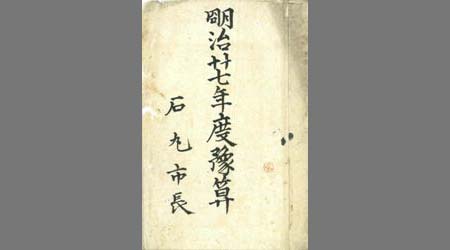 明治廿七年度豫算
石丸市長